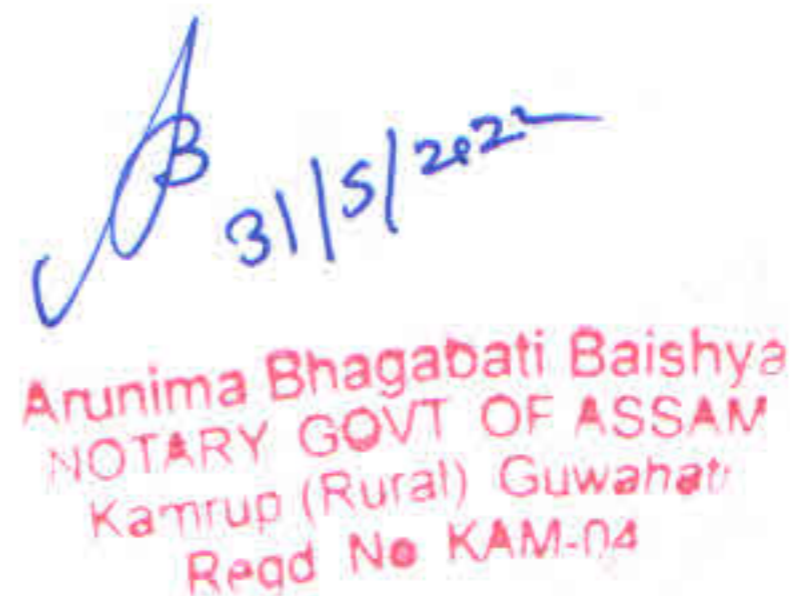 AB
31/5/2022
Arunima Bhagabati Baishya
NOTARY GOVT OF ASSAM
Kamrup (Rural) Guwahati
Regd No KAM-04